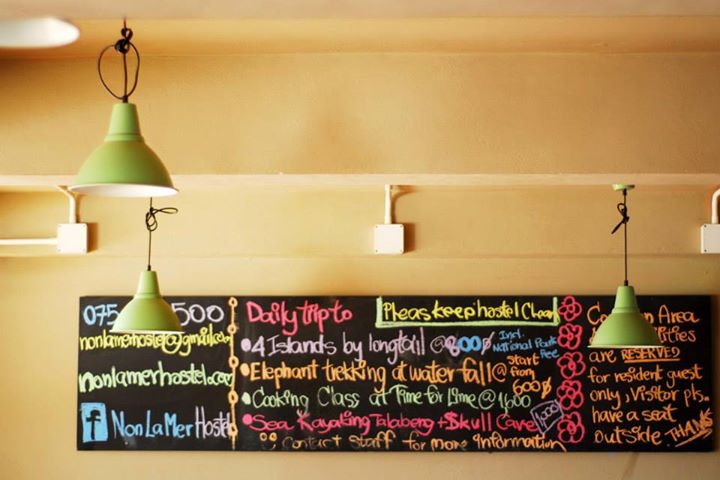 075 500
nonlamerhostel@gmail.com
nonlamerhostel.com
f NonLaMer Hostel
Daily trip to
4 Islands by longtail @800฿ Incl. National Park Fee
Elephant trekking at water fall @ start from 600฿
Cooking Class at Time for Lime @ 1600
Sea Kayaking Talabeng + Skull Cave 1600
Contact staff for more information
Pleas keep hostel Clean
Common Area
are RESERVED
for resident guest
only, Visitor pls.
have a seat
outside THANKS